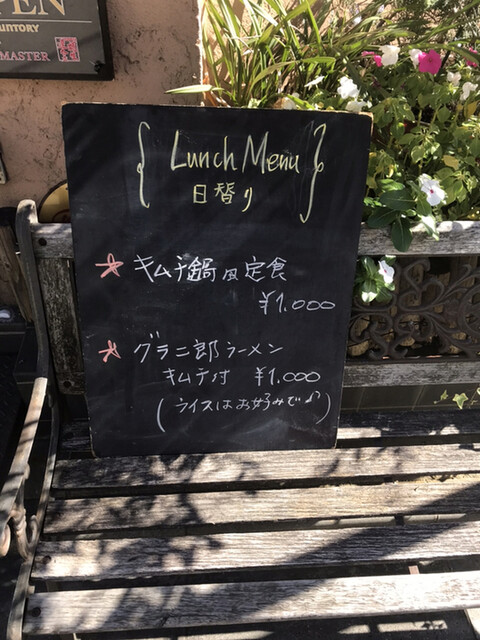 PEN
SUNTORY
MASTER
Lunch Menu
日替り
キムチ鍋風定食
¥1.000
グラ二郎ラーメン
キムチ付 ¥1.000
(ライスはお好みで♪)